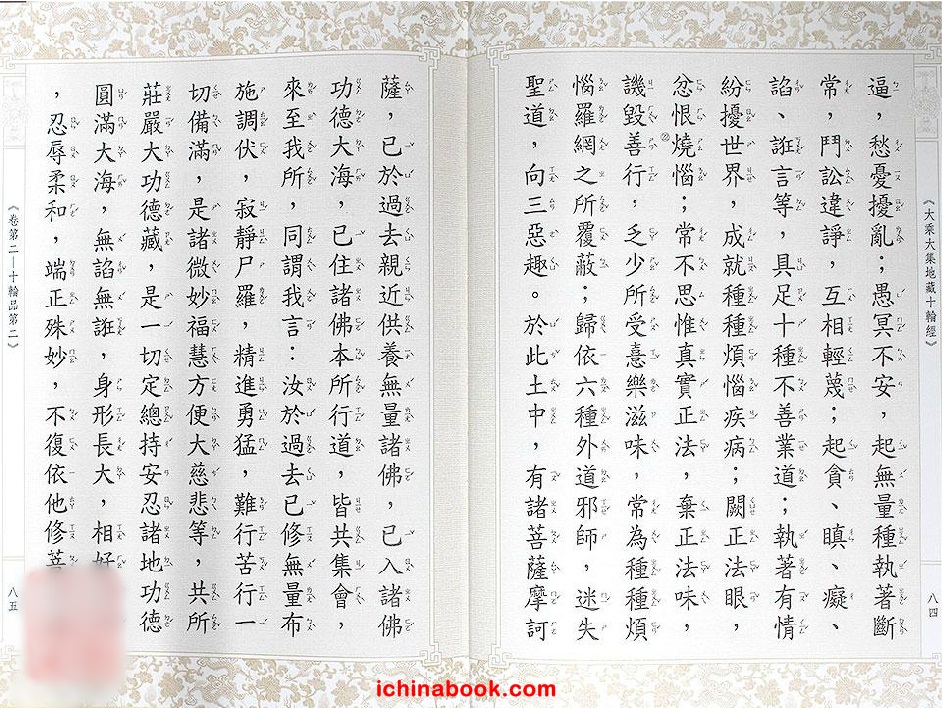 《大乘大集地藏十輪經》
八四
逼，愁憂擾亂；愚冥不安，起無量種執著斷
常，鬥訟違諍，互相輕蔑；起貪、瞋、癡、
諂、誑言等，具足十種不善業道；執著有情
紛擾世界，成就種種煩惱疾病；闕正法眼，
忿恨燒惱；常不思惟真實正法，棄正法味，
譏毀善行，乏少所受憙樂滋味，常為種種煩
惱羅網之所覆蔽；歸依六種外道邪師，迷失
聖道，向三惡趣。於此土中，有諸菩薩摩訶
薩，已於過去親近供養無量諸佛，已入諸佛
功德大海，已住諸佛本所行道，皆共集會，
來至我所，同謂我言：汝於過去已修無量布
施調伏，寂靜尸羅，精進勇猛，難行苦行一
切備滿，是諸微妙福慧方便大慈悲等，共所
莊嚴大功德藏，是一切定總持安忍諸地功德
圓滿大海，無諂無誑，身形長大，相好
，忍辱柔和，端正殊妙，不復依他修菩
《卷第二—十輪品第二》
八五
ichinabook.com